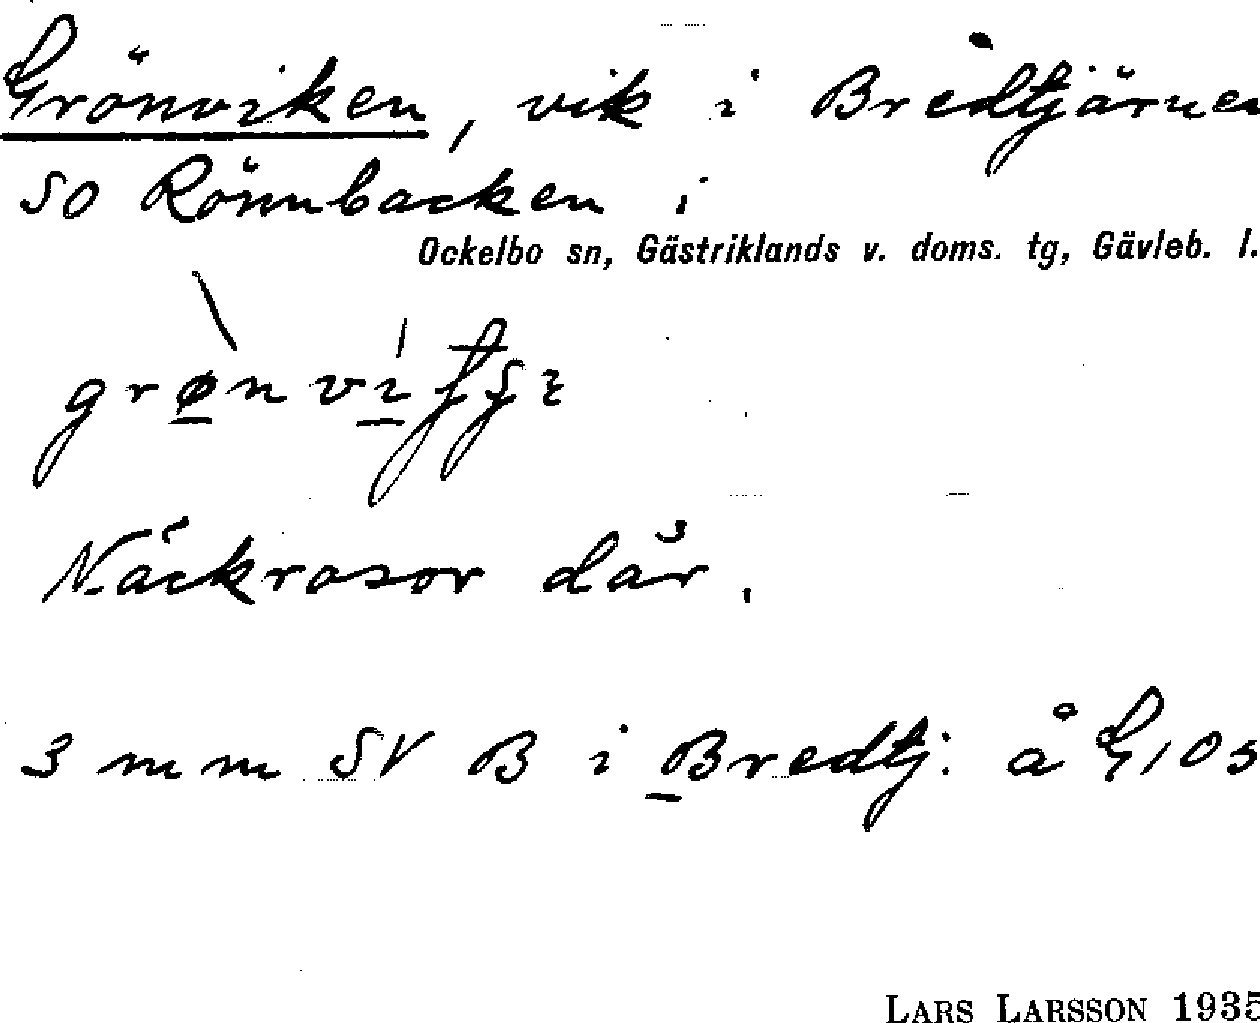 Grönviken, vik i Bredtjärnen
SO Rönnbacken i
Ockelbo sn, Gästriklands v. doms. tg, Gävleb. l.
Näckrosor där.
3 mm SV B i Bredtj: å G105
LARS LARSSON 1935